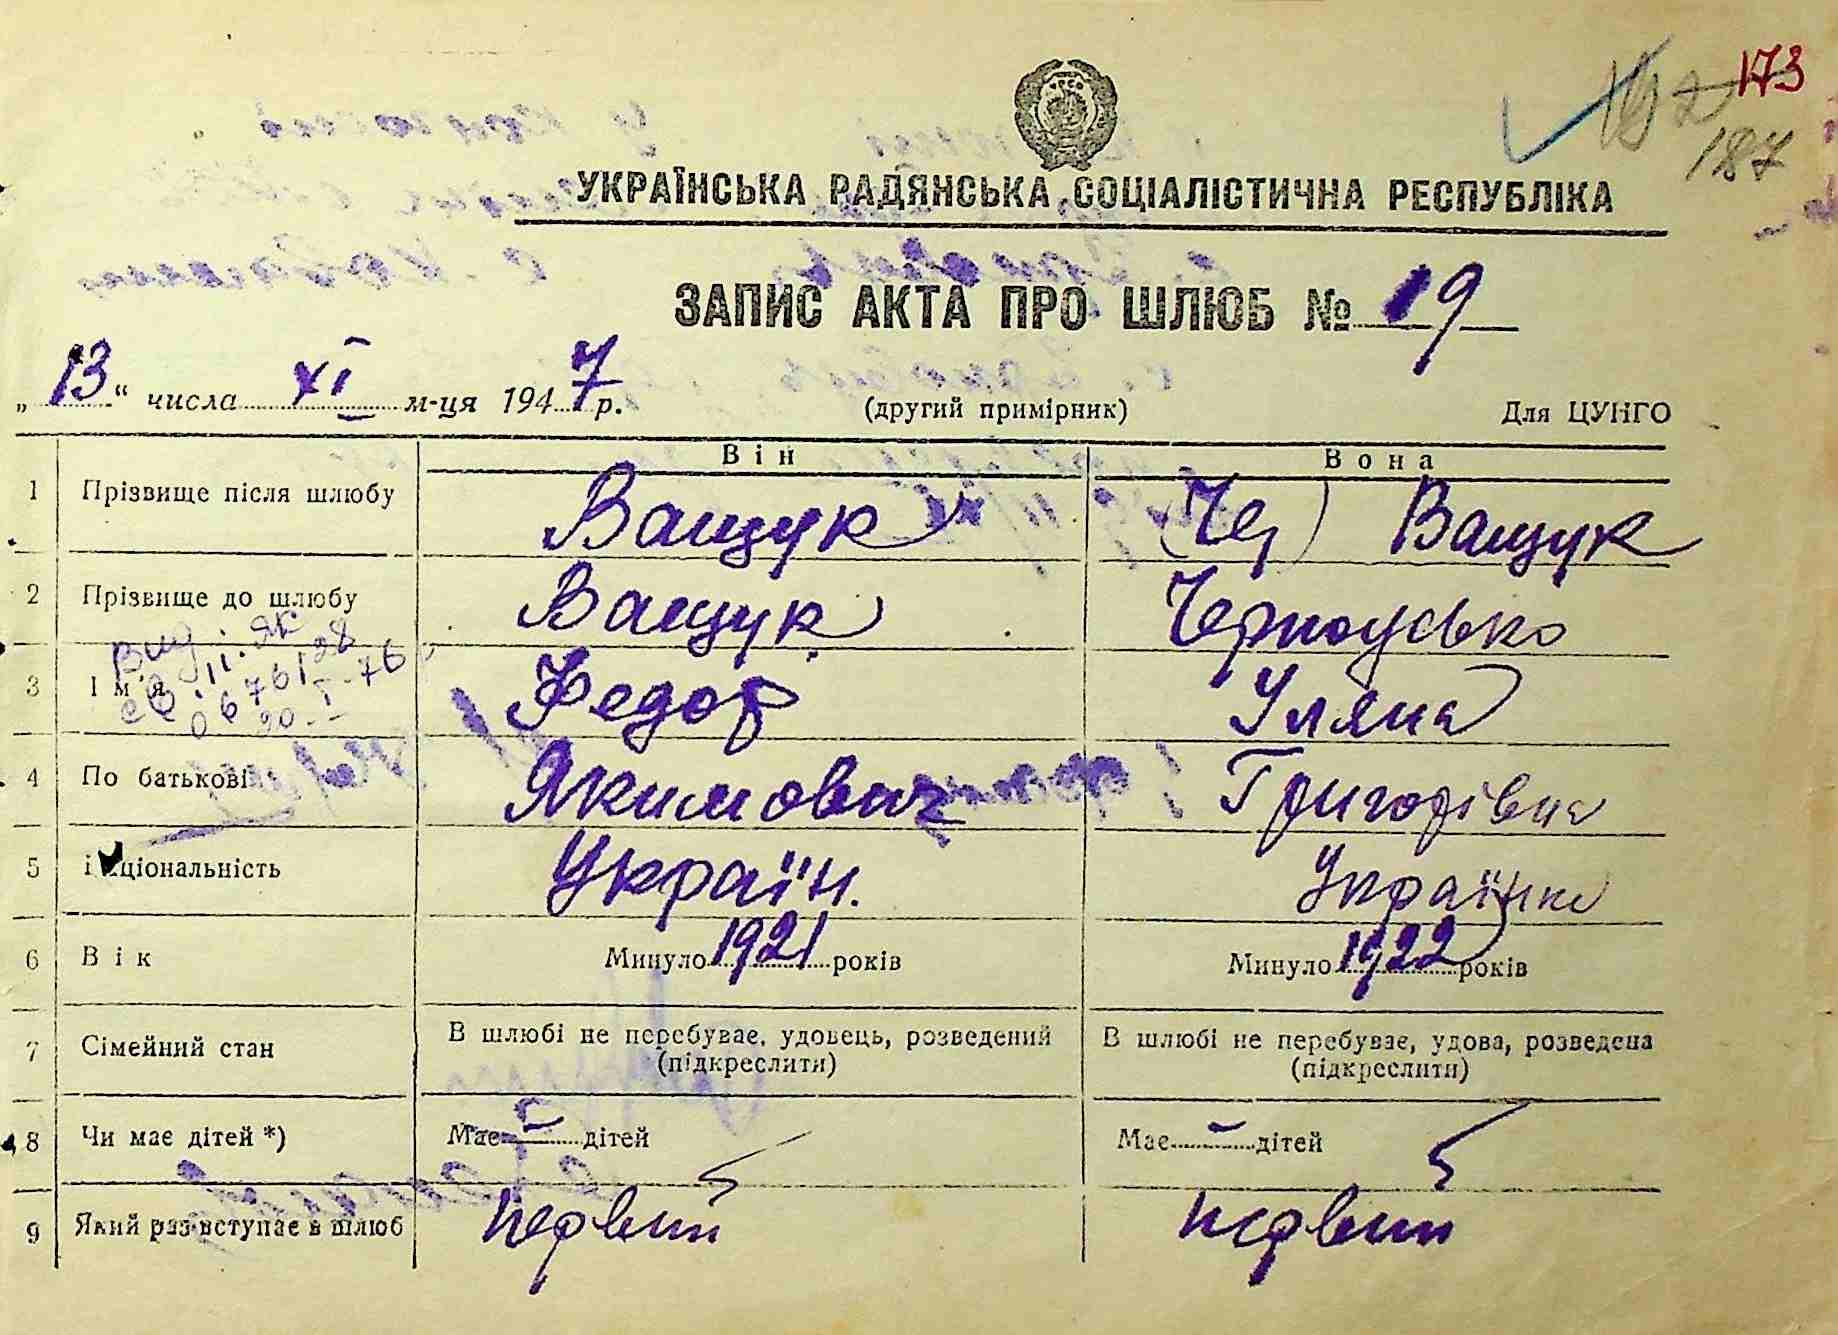 173
187
УКРАЇНСЬКА РАДЯНСЬКА СОЦІАЛІСТИЧНА РЕСПУБЛІКА
ЗАПИС АКТА ПРО ШЛЮБ № 19
„13“ числа XI м-ця 1947 р. (другий примірник) Для ЦУНГО
Він Вона
1 Прізвище після шлюбу Ващук (Че) Ващук
2 Прізвище до шлюбу Ващук Черноусько
Вид. 
3 Ім'я Федор Уляна
4 По батькові Якимович Григорівна
5 Національність Україн. Українка
6 Вік Минуло 1921 років Минуло 1922 років
7 Сімейний стан В шлюбі не перебуває, удовець, розведений (підкреслити) В шлюбі не перебуває, удова, розведена (підкреслити)
8 Чи має дітей *) Має - дітей Має - дітей
9 Який раз вступає в шлюб первий первий